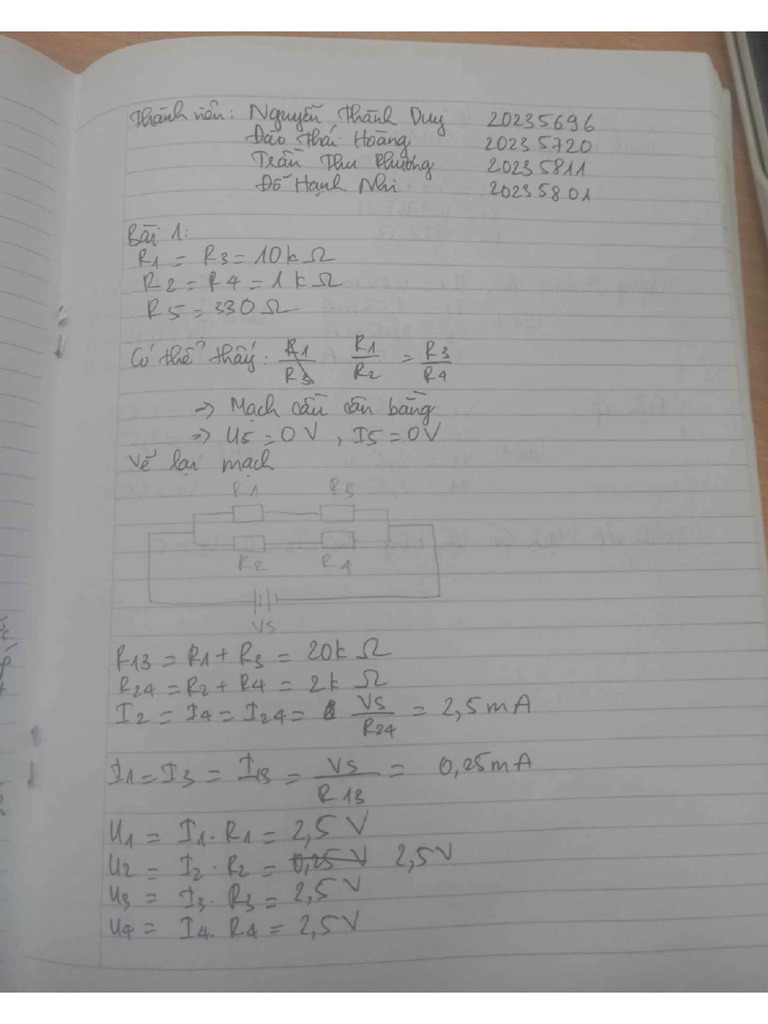 Thành viên: Nguyễn Thành Duy 20235696
Đào Thái Hoàng 20235720
Trần Thu Phương 20235811
Đỗ Hạnh Nhi 20235801
Bài 1:
R1 = R3 = 10k Ω
R2 = R4 = 1k Ω
R5 = 330 Ω
Có thể thấy: R1/R3 R1/R2 = R3/R4
→ Mạch cầu cân bằng
→ U5 = 0V, I5 = 0V
Vẽ lại mạch
R1 R3
R2 R4
VS
R13 = R1 + R3 = 20k Ω
R24 = R2 + R4 = 2k Ω
I2 = I4 = I24 = VS/R24 = 2,5mA
I1 = I3 = I13 = VS/R13 = 0,25mA
U1 = I1. R1 = 2,5V
U2 = I2. R2 = 0,25V 2,5V
U3 = I3. R3 = 2,5V
U4 = I4. R4 = 2,5V